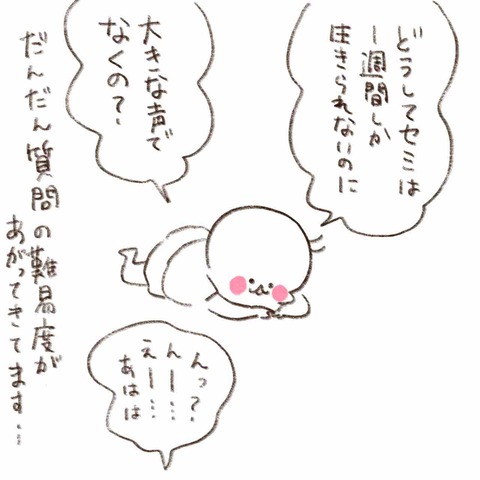 どうしてセミは
一週間しか
生きられないのに
大きな声で
なくの？
んっ？
んー…
えー…
あはは
だんだん質問の難易度が
あがってきてます…